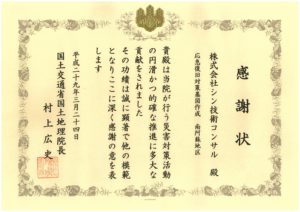 感謝状
株式会社シン技術コンサル 殿
応急復旧対策基図作成 南阿蘇地区
貴殿は当院が行う災害対策活動
の円滑かつ的確な推進に多大な
貢献をされました
その功績は誠に顕著で他の模範
となりここに深く感謝の意を表
します
平成二十九年三月二十四日
国土交通省国土地理院長
村上広史